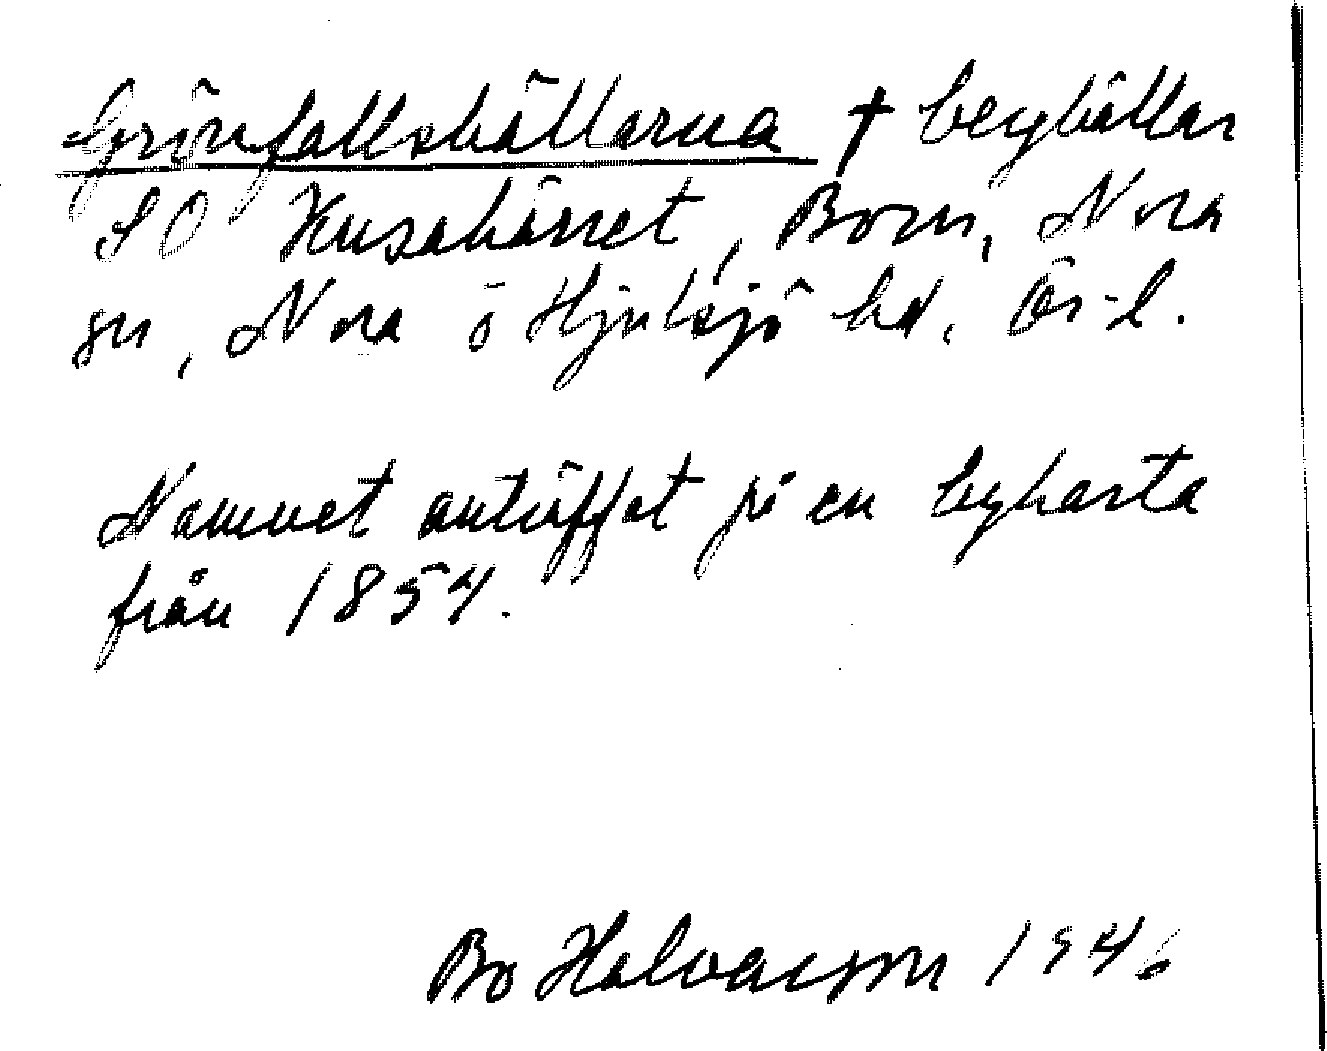 Grönfallshällarna † berghällar
SO Kusakärret, Born, Nora
sn, Nora o Hjulsjö hd. Ör. l.
Namnet anträffat på en bykarta
från 1854.
Bo Halvarsson 1946